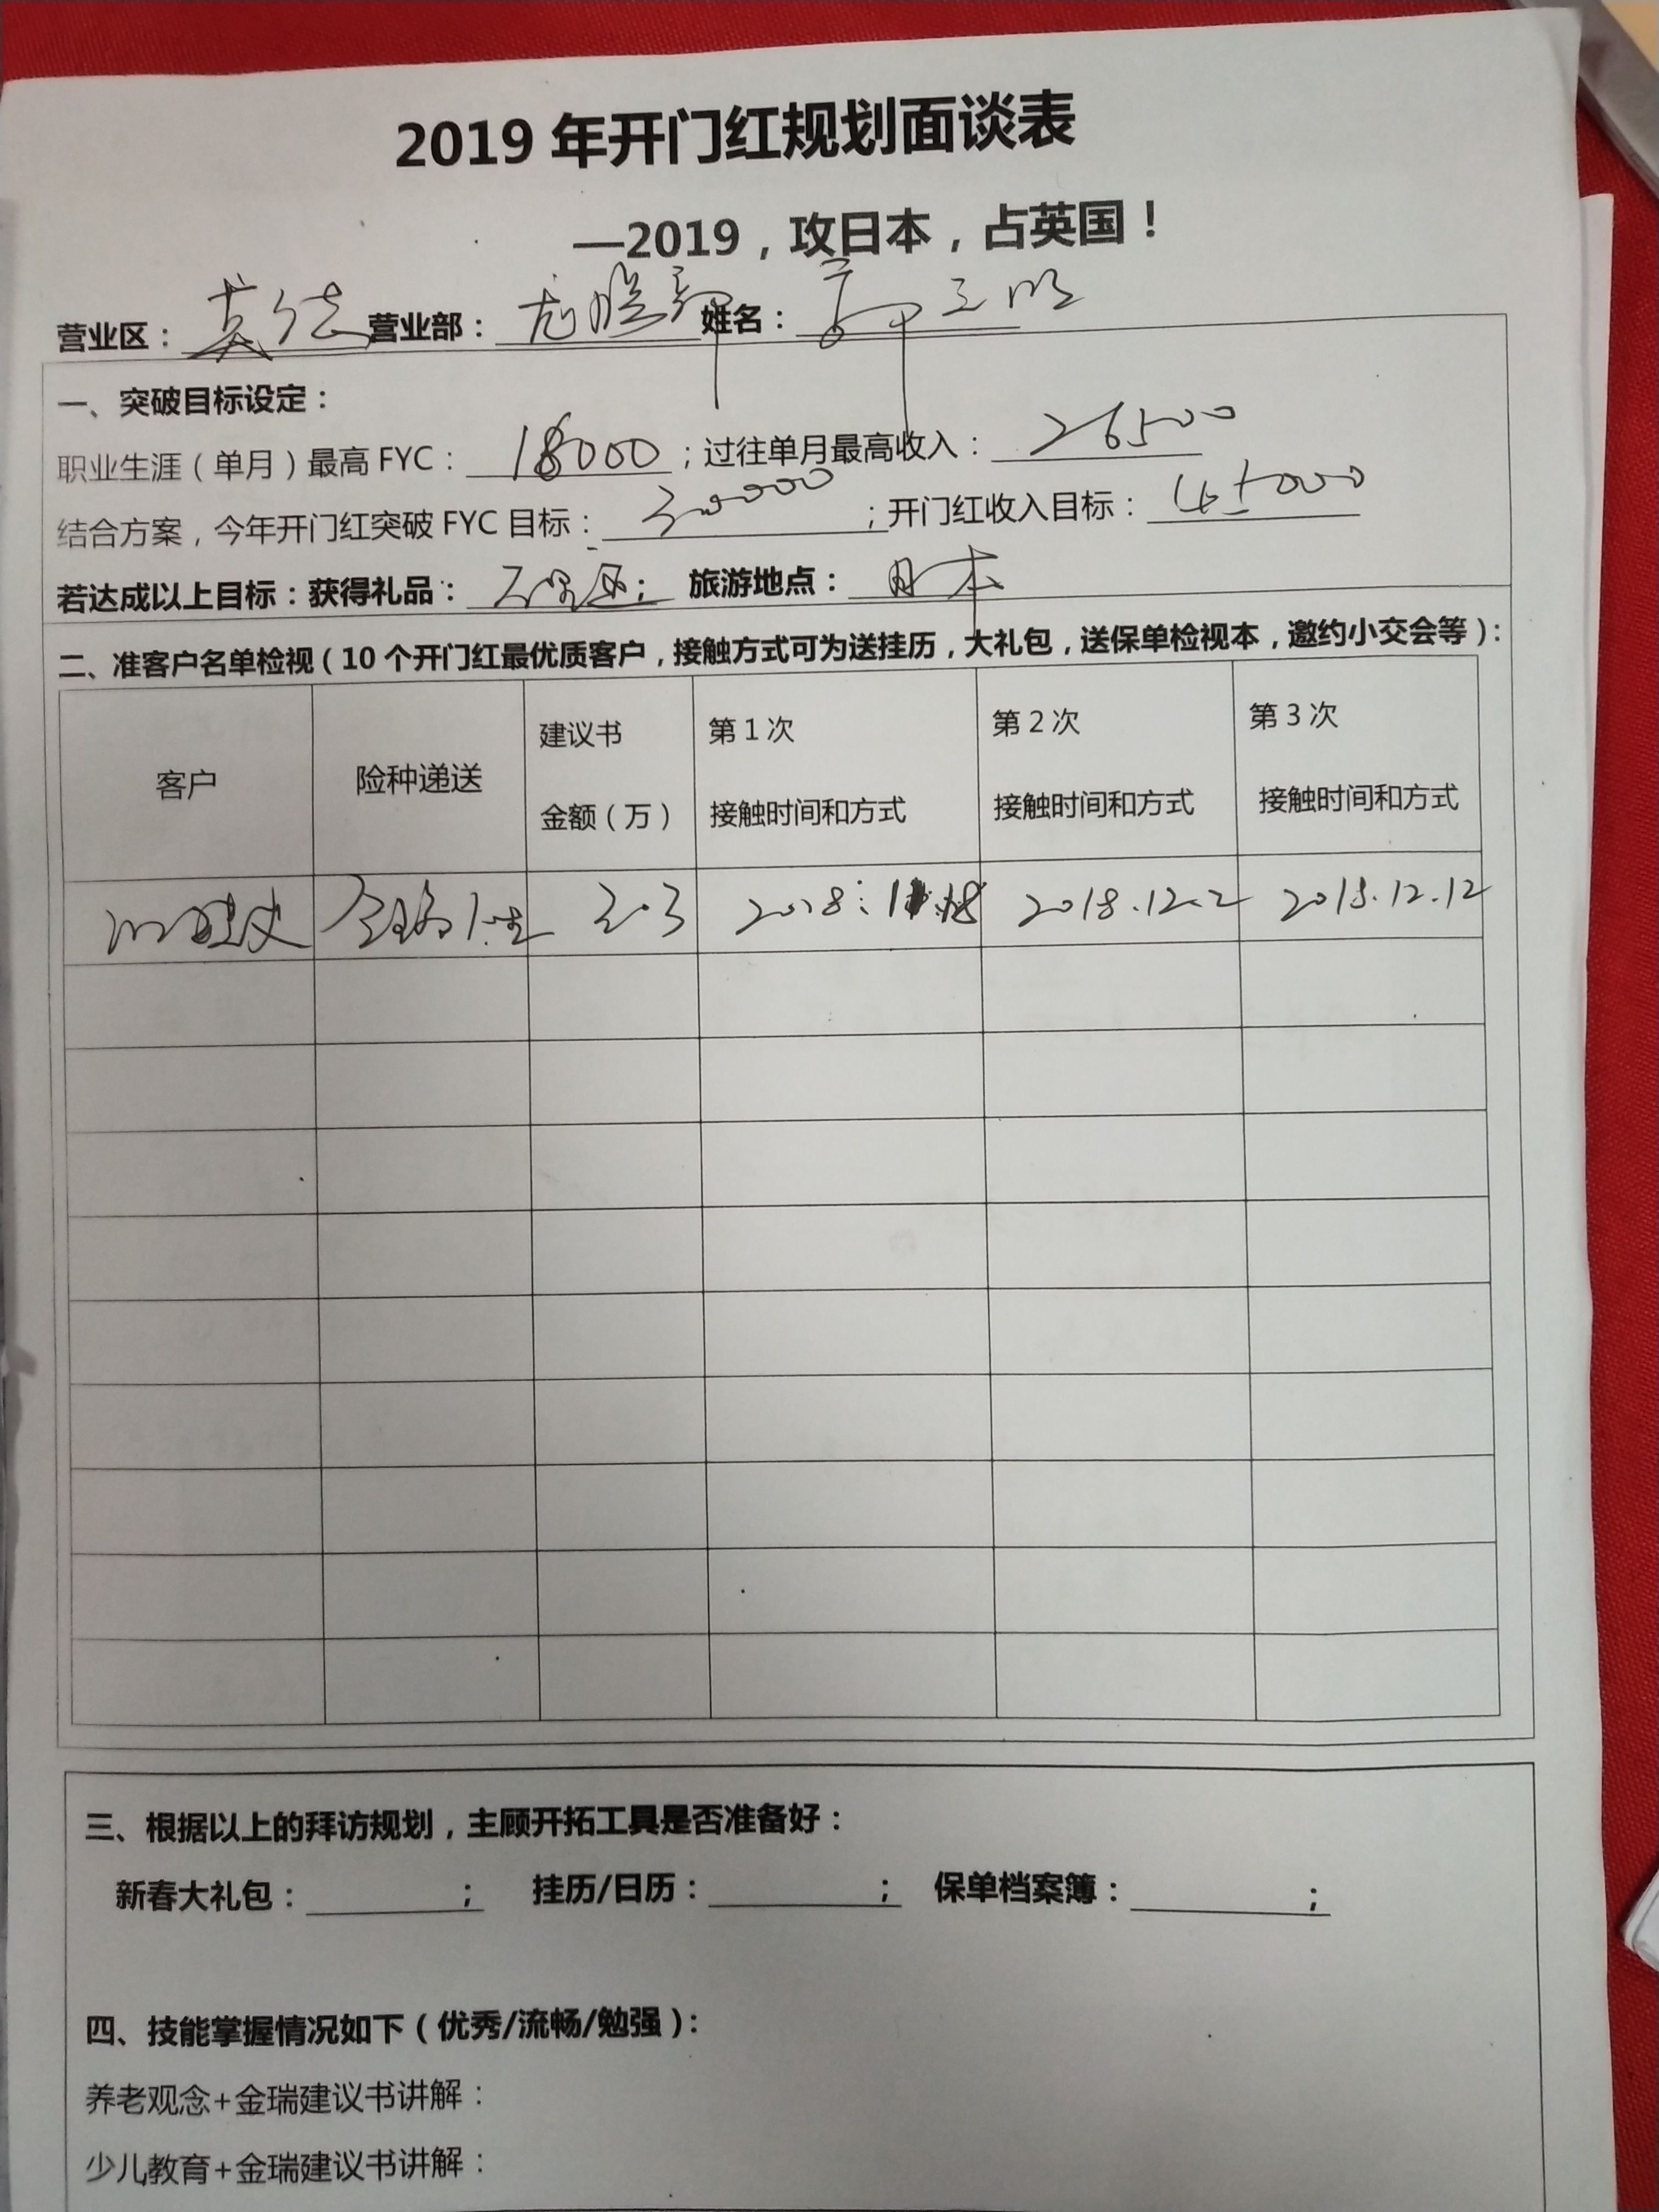 2019年开门红规划面谈表
—2019，攻日本，占英国！
营业区： 营业部： 姓名：
一、突破目标设定：
职业生涯（单月）最高FYC：18000；过往单月最高收入：26500
结合方案，今年开门红突破FYC目标：30000；开门红收入目标：45000
若达成以上目标：获得礼品： ；旅游地点：日本
二、准客户名单检视（10个开门红最优质客户，接触方式可为送挂历，大礼包，送保单检视本，邀约小交会等）：
客户 险种递送 建议书金额（万） 第1次接触时间和方式 第2次接触时间和方式 第3次接触时间和方式
金瑞人生 2018.12.2 2018.12.12
三、根据以上的拜访规划，主顾开拓工具是否准备好：
新春大礼包： ； 挂历/日历： ； 保单档案簿： ；
四、技能掌握情况如下（优秀/流畅/勉强）：
养老观念+金瑞建议书讲解：
少儿教育+金瑞建议书讲解：